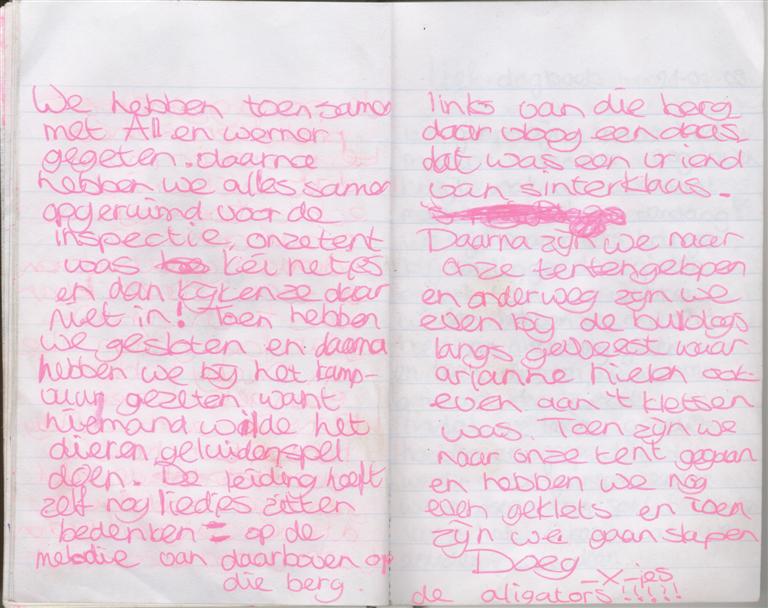 We hebben toen samen
met All en werner
gegeten. daarna
hebben we alles samen
opgeruimd voor de
inspectie, onze tent
was kei netjes
en dan kyken ze daar
niet in! Toen hebben
we gesloten en daarna
hebben we by het kamp-
vuur gezeten want
niemand wilde het
dieren geluidenspel
doen. De leiding heeft
zelf nog liedjes zitten
bedenken = op de
melodie van daarboven op
die berg.
links van die berg
daar vloog een daas
dat was een vriend
van sinterklaas.
Daarna zijn we naar
onze tenten gelopen
en onderweg zijn we
even by de bulldogs
langs geweest waar
arianne hielen ook
even aan 't kletsen
was. Toen zijn we
naar onze tent gegaan
en hebben we nog
even geklets en toen
zijn we gaan slapen
Doeg
-x-jes
de aligators !!!!!